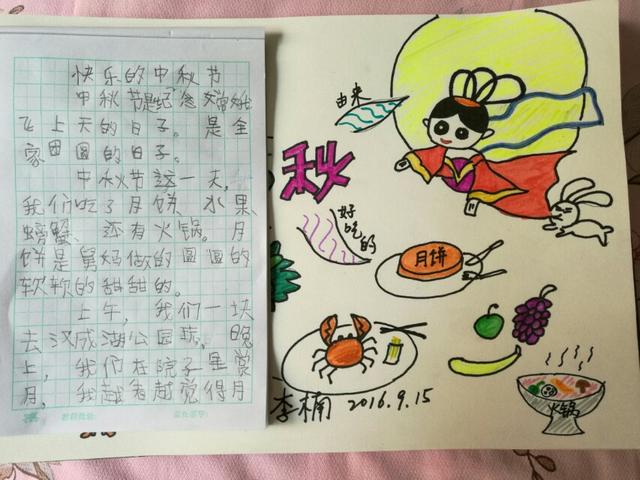 快乐的中秋节
中秋节是纪念嫦娥
飞上天的日子。是全
家团圆的日子。
中秋节这一天，
我们吃了月饼、水果、
螃蟹、还有火锅。月
饼是舅妈做的圆圆的
软软的甜甜的。
上午，我们一块
去汉城湖公园玩，晚
上，我们在院子里赏
月，我越看越觉得月
由来
秋
好吃的
月饼
火锅
李楠 2016.9.15